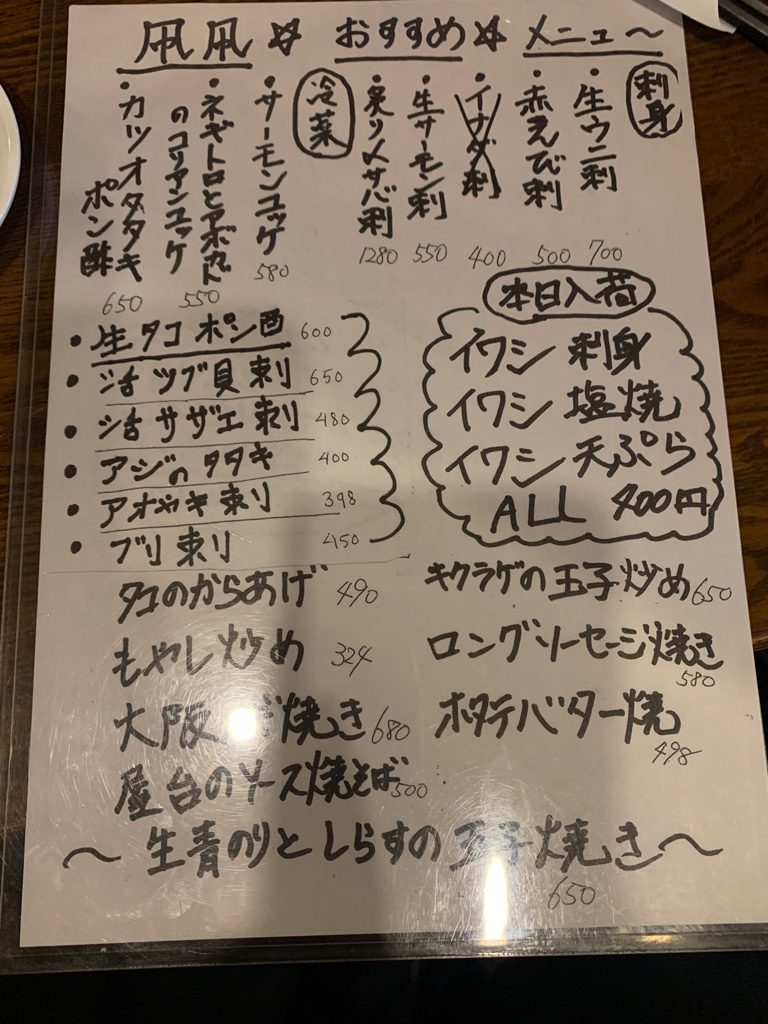 凧凧☆おすすめ☆メニュー
刺身
・生ウニ刺 700
・赤えび刺 500
・イナダ刺 400
・生サーモン刺 550
・炙り〆サバ刺 1280
冷菜
・サーモンユッケ 580
・ネギトロとアボカド
のコリアンユッケ 550
・カツオタタキ
ポン酢 650
本日入荷
イワシ 刺身
イワシ 塩焼
イワシ 天ぷら
ALL 400円
・生タコポン酉 600
・活ツブ貝刺 650
・活サザエ刺 480
・アジのタタキ 400
・アオヤキ刺り 398
・ブリ刺り 450
タコのからあげ 490
もやし炒め 324
大阪 焼き 680
屋台のソース焼そば 500
キクラゲの玉子炒め 650
ロングソーセージ焼き 580
ホタテバター焼 498
〜生青のりとしらすの玉子焼き〜
650